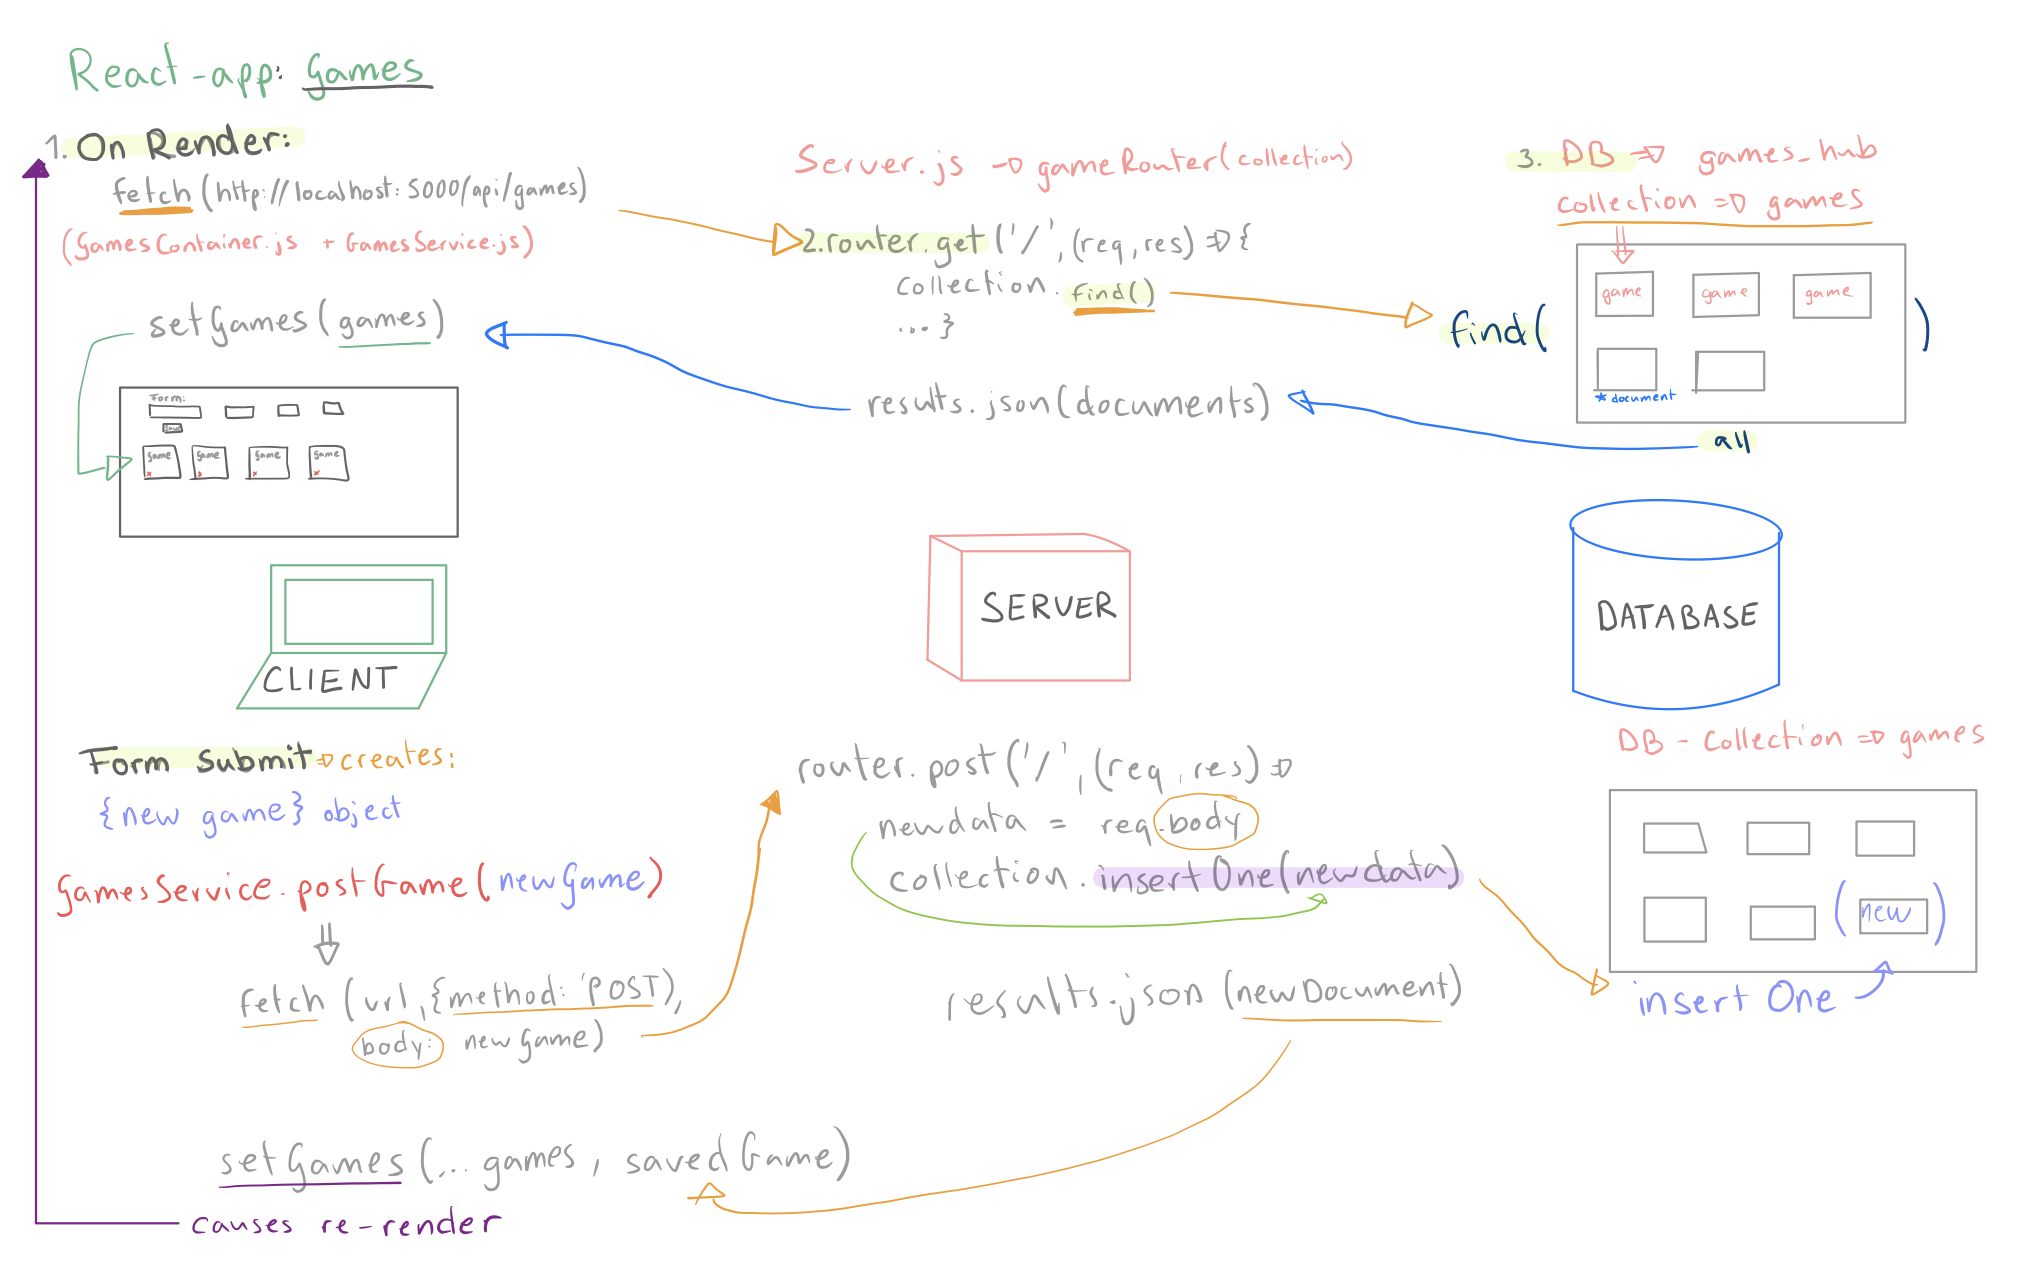 React-app: Games
1. On Render:
fetch (http://localhost:5000/api/games)
(GamesContainer.js + GamesService.js)
setGames (games)
Form:
Save
game game game game
CLIENT
Server.js → gameRouter(collection)
2.router.get('/',(req,res) => {
collection.find()
... }
results.json(documents)
SERVER
3. DB => games_hub
collection => games
game game game
find( )
* document
all
DATABASE
Form Submit → creates:
{new game} object
GamesService.postGame(newGame)
fetch (url,{method: 'POST),
body: newGame)
setGames (... games, savedGame)
causes re-render
router.post('/',(req, res) =>
newdata = req.body
collection.insertOne(newdata)
results.json (newDocument)
DB - Collection => games
(new)
insertOne